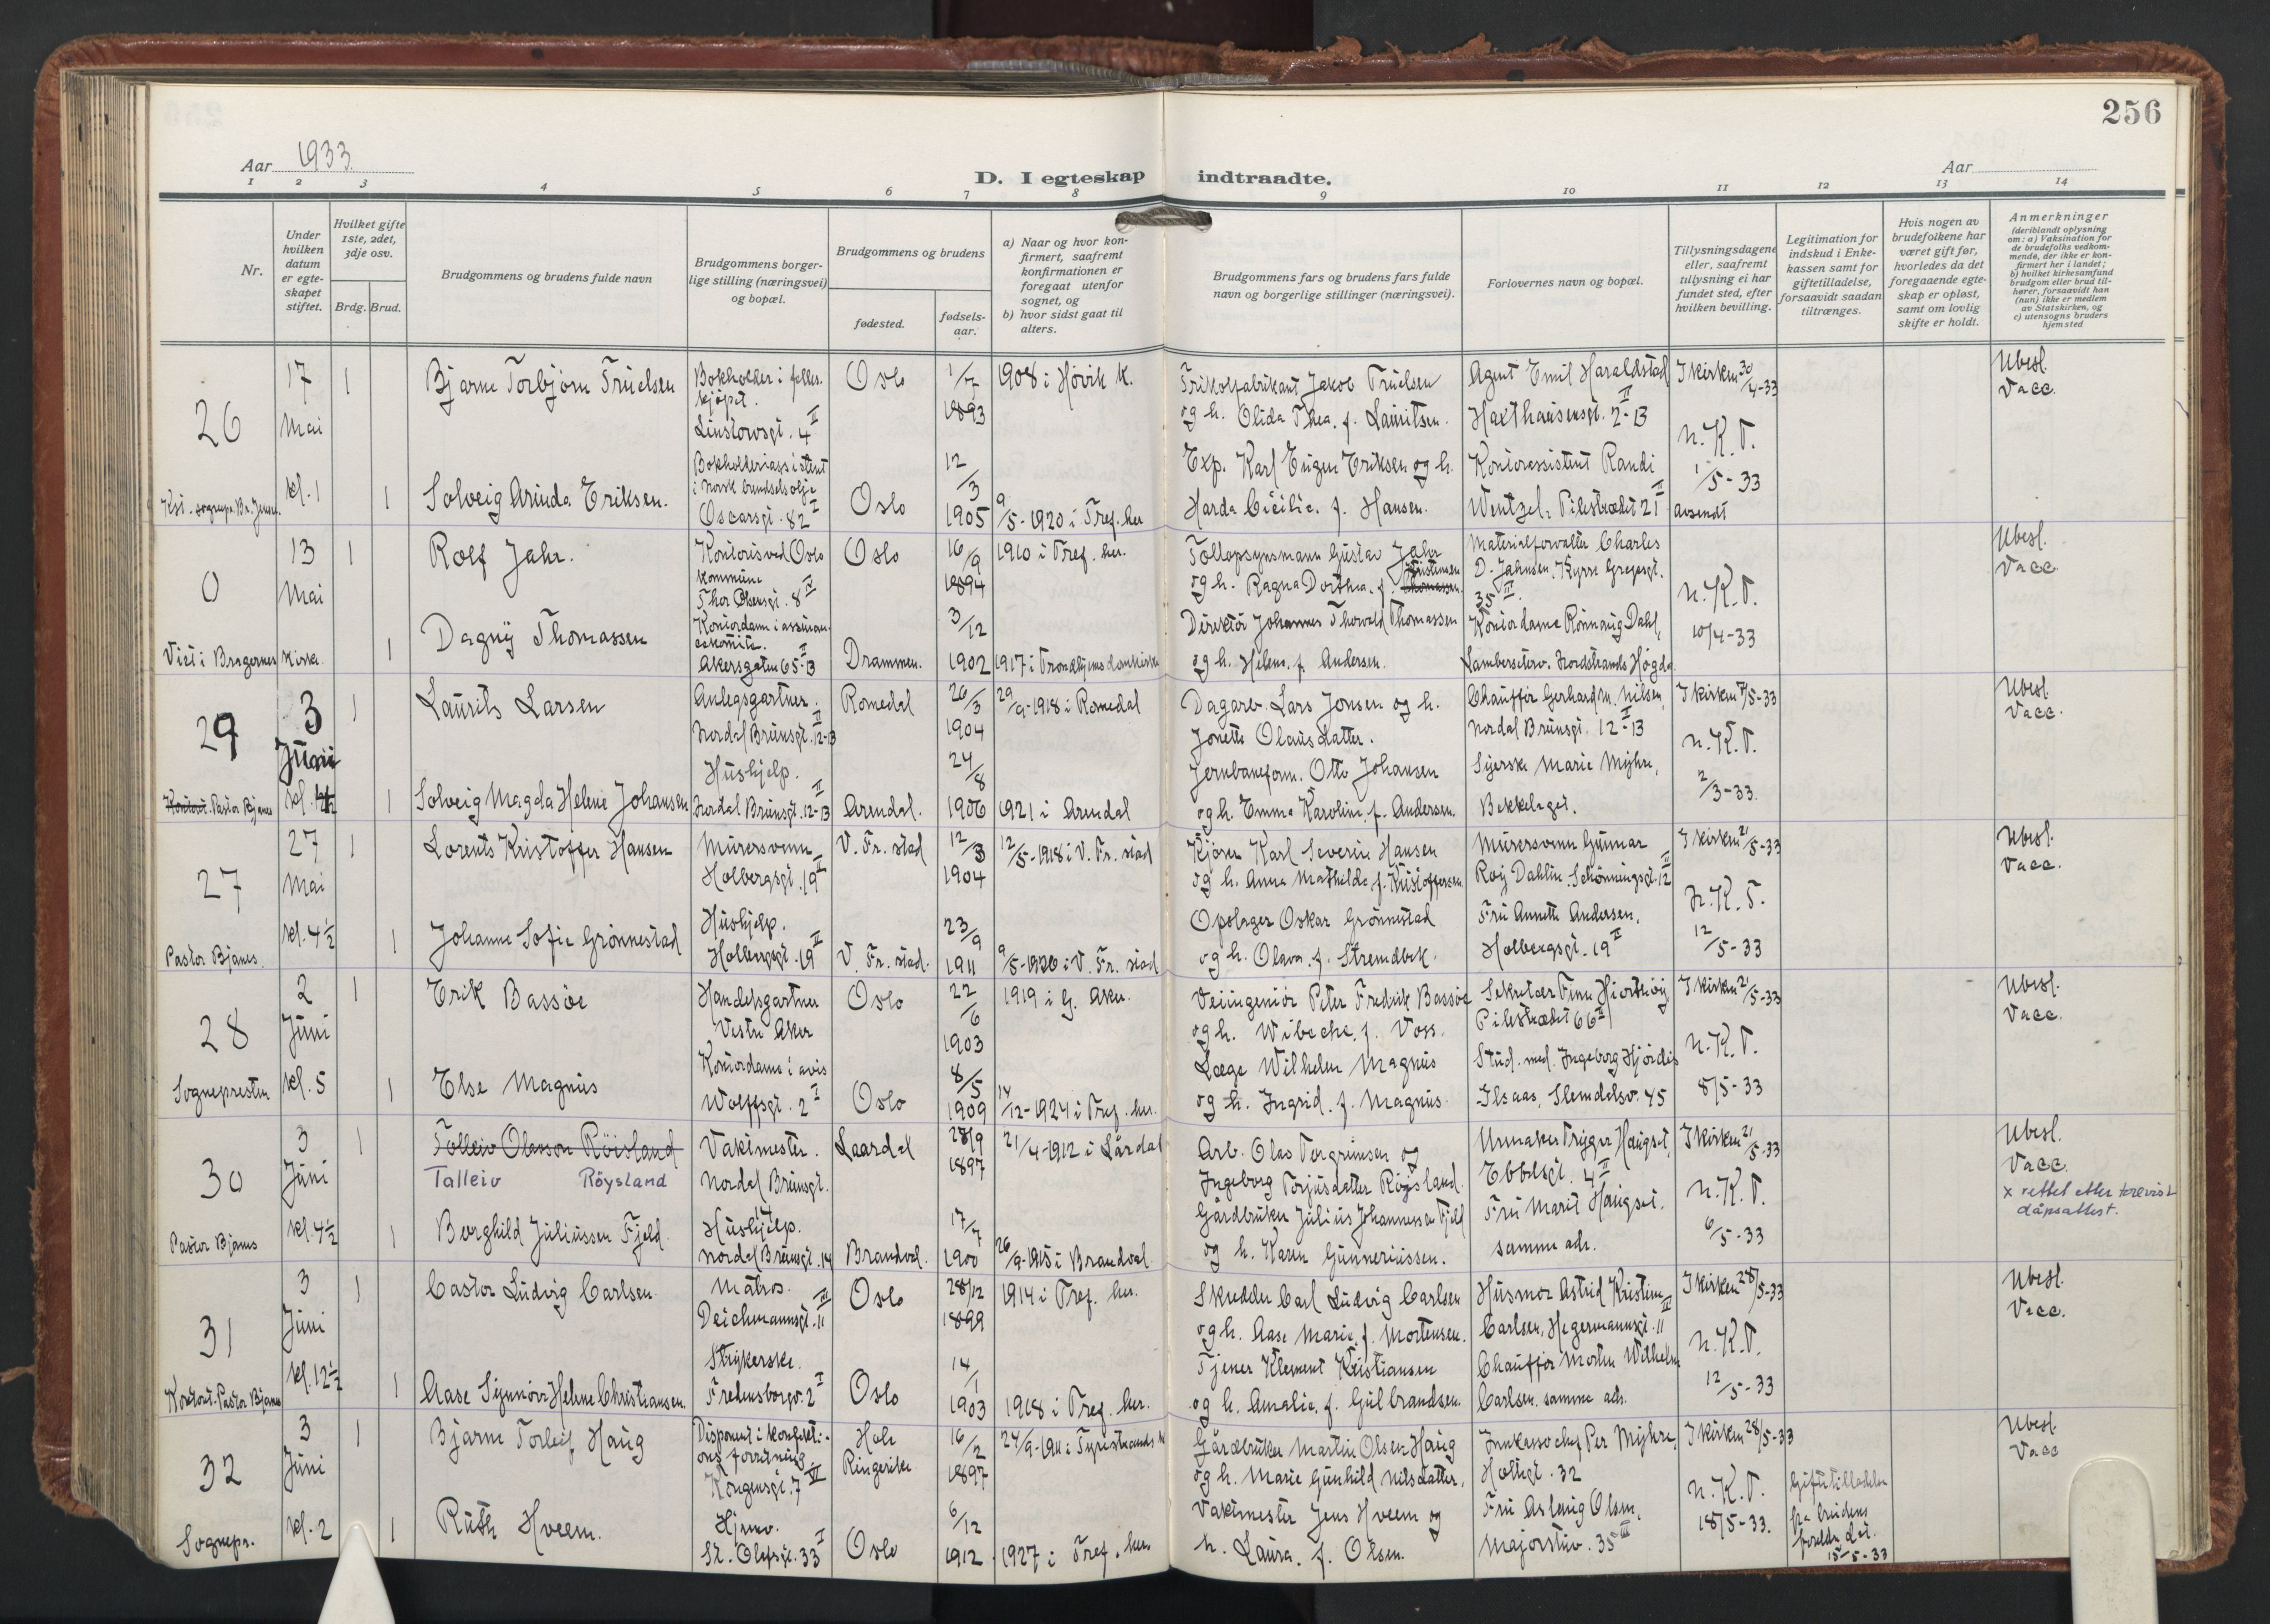 256
Aar 1933.
Aar
D. I egteskap indtraadte.
1 2 3 4 5 6 7 8 9 10 11 12 13 14
Nr.
Under hvilken datum er egteskapet stiftet.
Hvilket gifte 1ste, 2det, 3dje osv.
Brdg. Brud.
Brudgommens og brudens fulde navn
Brudgommens borgerlige stilling (næringsvei) og bopæl.
Brudgommens og brudens
fødested.
fødselsaar.
a) Naar og hvor konfirmert, saafremt konfirmationen er foregaat utenfor sognet, og
b) hvor sidst gaat til alters.
Brudgommens fars og brudens fars fulde navn og borgerlige stillinger (næringsvei).
Forlovernes navn og bopæl.
Tillysningsdagene eller, saafremt tillysning ei har fundet sted, efter hvilken bevilling.
Legitimation for indskud i Enkekassen samt for giftetilladelse, forsaavidt saadan tiltrænges.
Hvis nogen av brudefolkene har været gift før, hvorledes da det foregaaende egteskap er opløst, samt om lovlig skifte er holdt.
Anmerkninger
(deriblandt oplysning om: a) Vaksination for de brudefolks vedkommende, der ikke er konfirmert her i landet;
b) hvilket kirkesamfund brudgom eller brud tilhører, forsaavidt han (hun) ikke er medlem av Statskirken, og
c) utensogns bruders hjemsted
26
17 Mai kl. 1
1
Bjarne Torbjørn Truelsen
Bokholder i felleskjøpet.
Linstowsgt. 4 II
Oslo
1/7 1893
1908 i Høvik k.
Trikotfabrikant Jakob Truelsen
og h. Olida Thea. f. Lauritsen.
Agent Emil Haraldstad
Haxthausensgt. 2 II - 13
I kirken 30/4-33
Ubesl.
Vacc.
1
Solveig Arnida Eriksen.
Bokholderiassistent
i Norsk brendselsolje
Oscarsgt. 82 I
Oslo
12/3 1905
9/5-1920 i Tref. her
Exp. Karl Eugen Eriksen og h.
Harda Cicilie. f. Hansen.
Kontorassistent Randi
Wentzel, Pilestrædet 21 II
n.K.T.
1/5-33
avsendt
0
13 Mai
Viet i Bragernes kirke
1
Rolf Jahr.
Kontorist ved Oslo
kommune
Thor Olsensgt. 8 IV
Oslo
16/9 1894
1910 i Tref. her.
Tollopsynsmann Gustav Jahr
og h. Ragna Dorthea. f. Thomassen. Kristensen
Materialforvalter Charles
D. Jahnsen, Kyrre Grepsgt.
35 III.
n.K.T.
10/4-33
Ubesl.
Vacc.
1
Dagny Thomassen
Kontordame i assurancekomite.
Akersgaten 65 II - 13
Drammen.
3/12 1902
1917 i Trondhjems domkirke
Direktør Johannes Thorvald Thomassen
og h. Helene. f. Andersen.
Kontordame Rønnaug Dahl,
Lambertseterv. Nordstrands Høgda
29
3 Juni
Pastor Bjanes
1
Laurits Larsen
Anlegsgartner.
Nordal Brunsgt. 12 II - 13
Romedal
26/3 1904
29/9-1918 i Romedal
Dagarb. Lars Jonsen og h.
Jonette Olausdatter.
Chauffør Gerhard M. Nilsen,
Nordal Brunsgt. 12 II - 13
I kirken 7/5-33
Ubesl.
Vacc.
1
Solveig Magda Helene Johansen
Hushjelp.
Nordal Brunsgt. 12 II - 13
Arendal.
24/8 1906
1921 i Arendal
Jernbaneform. Otto Johansen
og h. Emma Karoline. f. Andersen.
Syerske Marie Myhre,
Bekkelaget.
n.K.T.
2/3-33.
27
27 Mai kl. 4 1/2
Pastor Bjanes.
1
Lorents Kristoffer Hansen
Murersvenn
Holbergsgt. 19 II
V. Fr. stad
12/3 1904
12/5-1918 i V. Fr. stad
Kjører Karl Severin Hansen
og h. Anna Mathilde, f. Kristoffersen.
Murersvenn Gunnar
Roy Dahlin. Schønningsgt. 12 II
I kirken 21/5-33
Ubesl.
Vacc.
1
Johanne Sofie Grønnestad
Hushjelp.
Holbergsgt. 19 II
V. Fr. stad.
23/9 1911
9/5-1926 i V. Fr. stad
Opslager Oskar Grønnestad
og h. Olava. f. Strømdbek.
Fru Annette Andersen,
Holbergsgt. 19 II
n.K.T.
12/5-33
28
2 Juni kl. 5
Sognepresten
1
Erik Bassøe
Handelsgartner
Vestre Aker
Oslo
22/6 1903
1919 i G. Aker.
Veiingeniør Peter Fredrik Bassøe
og h. Wibecke. f. Voss.
Sekretær Finn Hiorthøy,
Pilestrædet 66 II
I kirken 21/5-33
Ubesl.
Vacc.
1
Else Magnus
Kontordame i avis
Wolffsgt. 2 I
Oslo
8/5 1909
14/12-1924 i Tref. her.
Læge Wilhelm Magnus
og h. Ingrid. f. Magnus.
Stud. med. Ingeborg Hjørdis
Ilsaas, Slemdalsv. 45
n.K.T.
8/5-33
30
3 Juni kl. 4 1/2
Pastor Bjanes
1
Tolleiv Olavson Röisland
Talleiv Röysland
Vaktmester.
Nordal Brunsgt. 14
Laardal
28/9 1897
21/4-1912 i Lårdal
Arb. Olav Torgrimsen og
Ingeborg Torjusdatter Røysland.
Urmaker Trygve Haugset,
Ebbelsgt. 4 II
I kirken 21/5-33
Ubesl.
Vacc.
x rettet etter forevist
dåpsattest.
1
Borghild Juliussen Fjeld.
Hushjelp.
Nordal Brunsgt. 14
Brandval.
17/7 1900
26/9-1915 i Brandval
Gårdbruker Julius Johannessen Fjeld
og h. Karen Gunneriussen.
Fru Marit Haugset.
samme adr.
n.K.T.
6/5-33
31
3 Juni kl. 12 1/2
Kontoret. Pastor Bjanes
1
Castor Ludvig Carlsen
Matros.
Deichmannsgt. 11 III
Oslo
28/12 1899
1914 i Tref. her.
Skredder Carl Ludvig Carlsen
og h. Aase Marie, f. Mortensen.
Husmor Astrid Kristine
Carlsen, Hegermannsgt. 11 III
I kirken 28/5-33
Ubesl.
Vacc.
1
Aase Synnøve Helene Christiansen.
Strykerske.
Fredensborgv. 2 I
Oslo
14/1 1903
1918 i Tref. her.
Tjener Klement Kristiansen
og h. Amalie. f. Gulbrandsen.
Chauffør Morten Wilhelm
Carlsen. samme adr.
n.K.T.
12/5-33
32
3 Juni kl. 2
Sognepr.
1
Bjarne Torleif Haug
Disponent i konfektions forretning
Kongensgt. 7 VI
Hole
Ringerike
16/2 1897
24/9-1911 i Tyristrands k
Gårdbruker Martin Olsen Haug
og h. Marie Gunhild Nilsdatter.
Inkassochef Per Myhre,
Holtegt. 32
I kirken 28/5-33
Ubesl.
Vacc
1
Ruth Hveem.
Hjemv.
St. Olafsgt. 33 I
Oslo
6/12 1912
1927 i Tref. her.
Vaktmester Jens Hveem og
h. Laura. f. Olsen.
Fru Aslaug Olsen,
Majorstuv. 35 III
n.K.T.
18/5-33.
Giftetilladelse
fra brudens
foreldre dat.
15-5-33